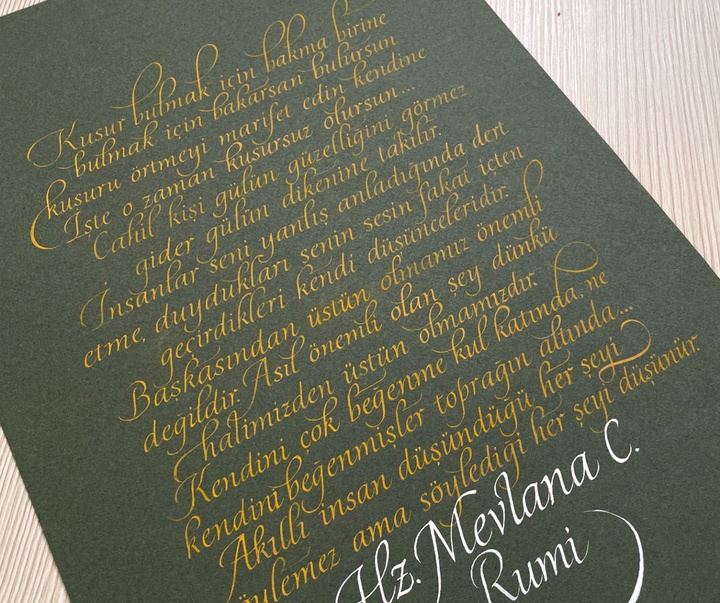 Kusur bulmak için bakma birine
bulmak için bakarsan bulursun
kusuru örtmeyi marifet edin kendine
İşte o zaman kusursuz olursun...
Cahil kişi gülün güzelliğini görmez
gider gülün dikenine takılır.
İnsanlar seni yanlış anladığında dert
etme, duydukları senin sesin fakat içten
geçirdikleri kendi düşünceleridir.
Başkasından üstün olmamız önemli
değildir. Asıl önemli olan şey dünkü
halimizden üstün olmamızdır.
Kendini çok beğenme kul katında, ne
kendini beğenmişler toprağın altında...
Akıllı insan düşündüğü her şeyi
söylemez ama söylediği her şeyi düşünür.
Hz. Mevlana C.
Rumi